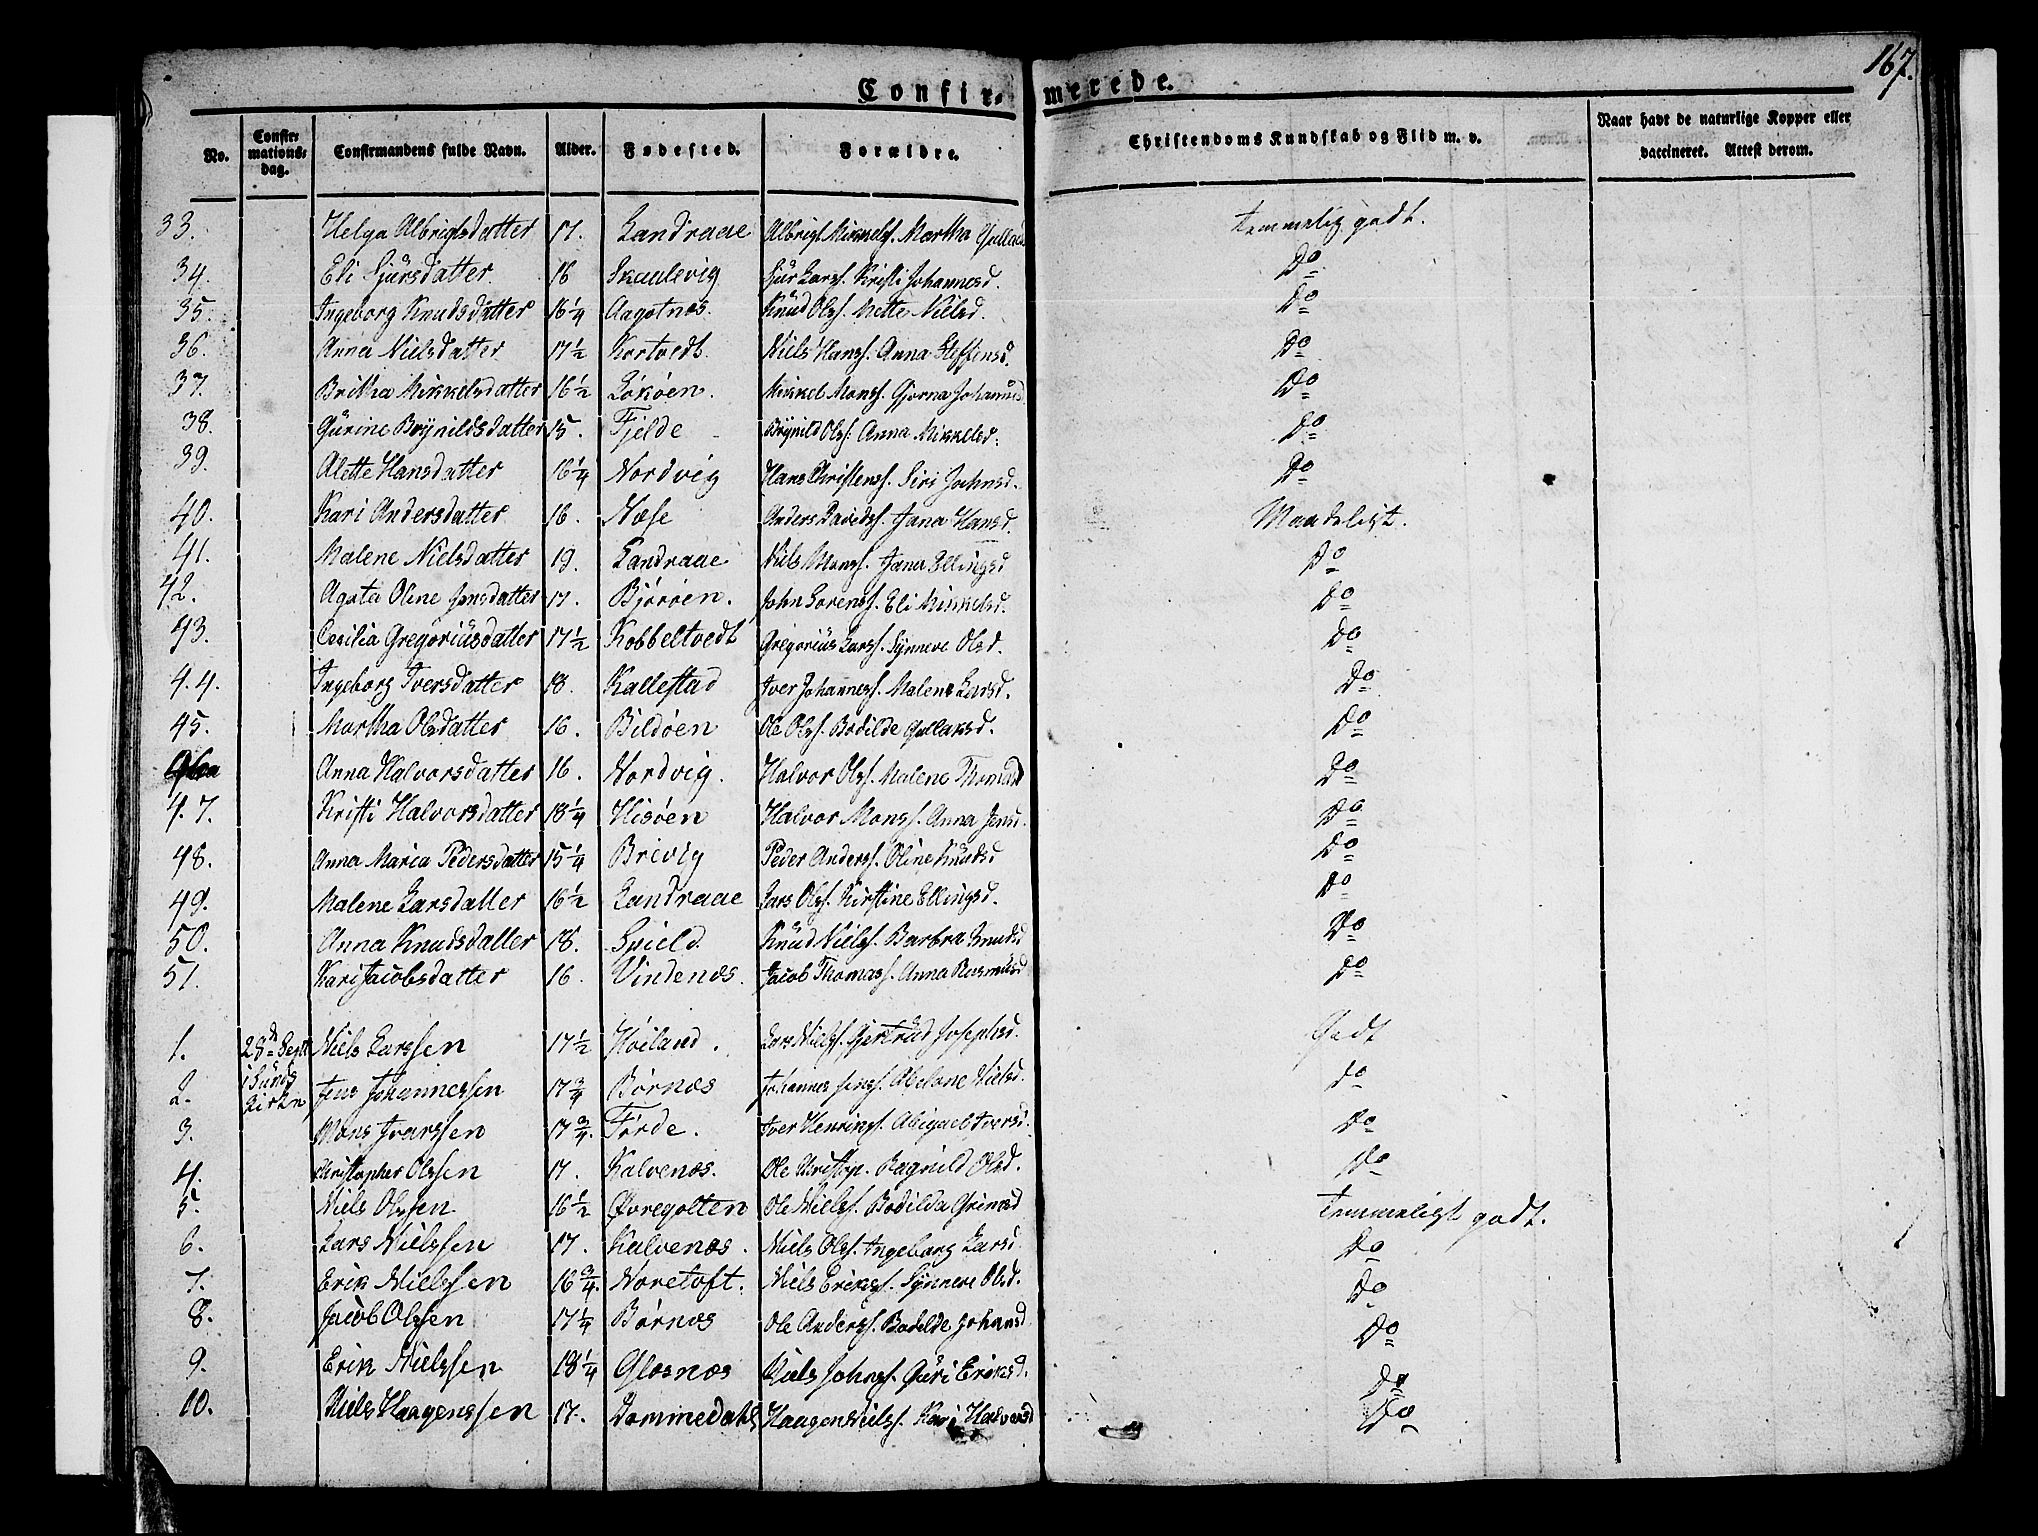 167.
Confir- merede.
No. Confir-mations-dag. Confirmandens fulde Navn. Alder. Fødested. Forældre. Christendoms Kundskab og Flid m. v. Naar havt de naturlige Kopper eller vaccineret. Attest derom.
33. Helga Albrigtsdatter 17. Landraae Albrigt Mikkels. Martha temmelig godt.
34. Eli Sjürsdatter 16 Skaalevig Sjür Larss. Kristi Johannesd. Do
35. Ingeborg Knudsdatter 16 1/4 Aagotnæs. Knüd Olss. Mette Nielsd. Do
36. Anna Nielsdatter 17 1/2 Kortvedt. Niels Hanss. Anna Steffensd. Do
37. Britha Mikkelsdatter 16 1/2 Løkøen. Mikkel Monss. Gjorna Johannesd Do
38. Gürine Brÿnildsdatter 15. Fjelde Brÿnild Olss: Anna Mikkelsd. Do
39. Alette Hansdatter 16 1/4 Nordvig Hans Christens. Siri Johnsd. Do
40. Kari Andersdatter 16. Næse Anders Davids. Jana Hansd. Maadeligt.
41. Malene Nielsdatter 19. Landraae Niels Monss. Jana Ellingsd Do
42. Agata Oline Jonsdatter 17. Bjørøen. John Sorenss. Eli Mikkelsd. Do
43. Cesilia Gregoriüsdatter 17 1/2 Kobbeltvedt Gregoriüs Larss. Sÿnneve Olsd. Do
44. Ingeborg Iversdatter 18. Kallestad Iver Johanness. Malene Larsd. Do
45. Martha Olsdatter 16. Bildøen Ole Olss. Bodilde Gullaksd. Do
Anna Halvorsdatter 16. Nordvig. Halvor Olss. Malene Thomasd Do
47. Kristi Halvorsdatter 18 1/4 Hisøen Halvor Monss. Anna Jensd. Do
48. Anna Maria Pedersdatter 15 1/4 Brevig Peder Anderss. Oline Knüdsd Do
49. Malene Larsdatter 16 1/2 Landraae Lars Olss. Kirstine Ellingsd. Do
50. Anna Knudsdatter 18. Spield Knüd Nielss. Barbra Knudsd Do
51. Kari Jacobsdatter 16. Vindenæs. Jacob Thomass. Anna Rasmusd Do
1. 28de Septb Niels Larssen 17 1/2 Høiland. Lars Nielss. Gjertrüd Josephsd. Godt
2. i Sunds Kirken Jens Johannessen 17 3/4 Børnæs Johannes Jenss. Abelone Nielsd. Do
3. Mons Ivarssen 17 3/4. Førde. Iver Henriks. Abigael Iversd. Do
4. Christopher Olssen 17. Kalvenæs. Ole Christop. Ragnild Olsd. Do
5. Niels Olssen 16 1/2 Øvregolten Ole Nielss. Bodilda Grimsd Temmeligt godt.
6. Lars Nielssen 17. Kalvenæs. Niels Olss. Ingeborg Larsd Do
7. Erik Nielssen 16 3/4. Noretoft. Niels Erikss. Sÿnneve Olsd. Do
8. Jacob Olssen 17 1/4 Børnæs Ole Anderss. Bodilde Johansd Do
9. Erik Nielssen 18 1/4 Glæsnæs Niels Johns. Güri Eriksd. Do
10. Niels Haagenssen 17. Dommedals Haagen Nielss. Kari Halvorsd Do